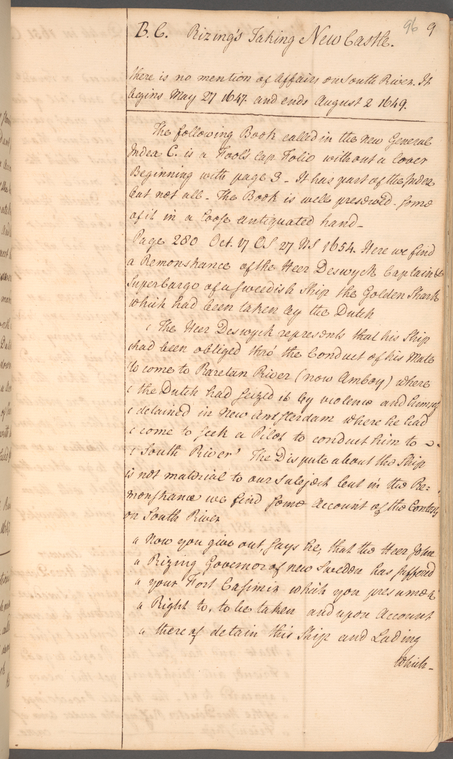 96 9
B. C. Rizing's Taking New Castle.
there is no mention of Affairs on South River. It
begins May 27 1647. and ends August 2 1649.
The following Book called in the new General
Index C. is a Fools cap Folio without a Cover
Beginning with page 3 - It has part of the Index
but not all - The Book is well preserved - some
of it in a loose antiquated hand -
Page 280 Oct. 17 OS 27 NS 1654. Here we find
a Remonstrance of the Heer Deswyck Captain &
Super Cargo of a Swedish Ship the Golden Shark
which had been taken by the Dutch
‘ The Heer Deswyck represents that his Ship
‘ had been obliged thro' the Conduct of his Mate
to come to Raretan River (now Amboy) where
‘ the Dutch had seized it by violence and
‘ detained in New Amsterdam where he had
‘ come to seek a Pilot to conduct him to
‘ South River’ The Dispute about the Ship
is not material to our Subject but in the Re-
monstrance we find some Account of the
on South River
“ Now you give out, says he, that the Heer John
“ Rizing Governor of new Sweden has
“ your Fort Casimir which you presume
“ a Right to, to be taken and upon Account
“ thereof detain this Ship and Lading
Which -